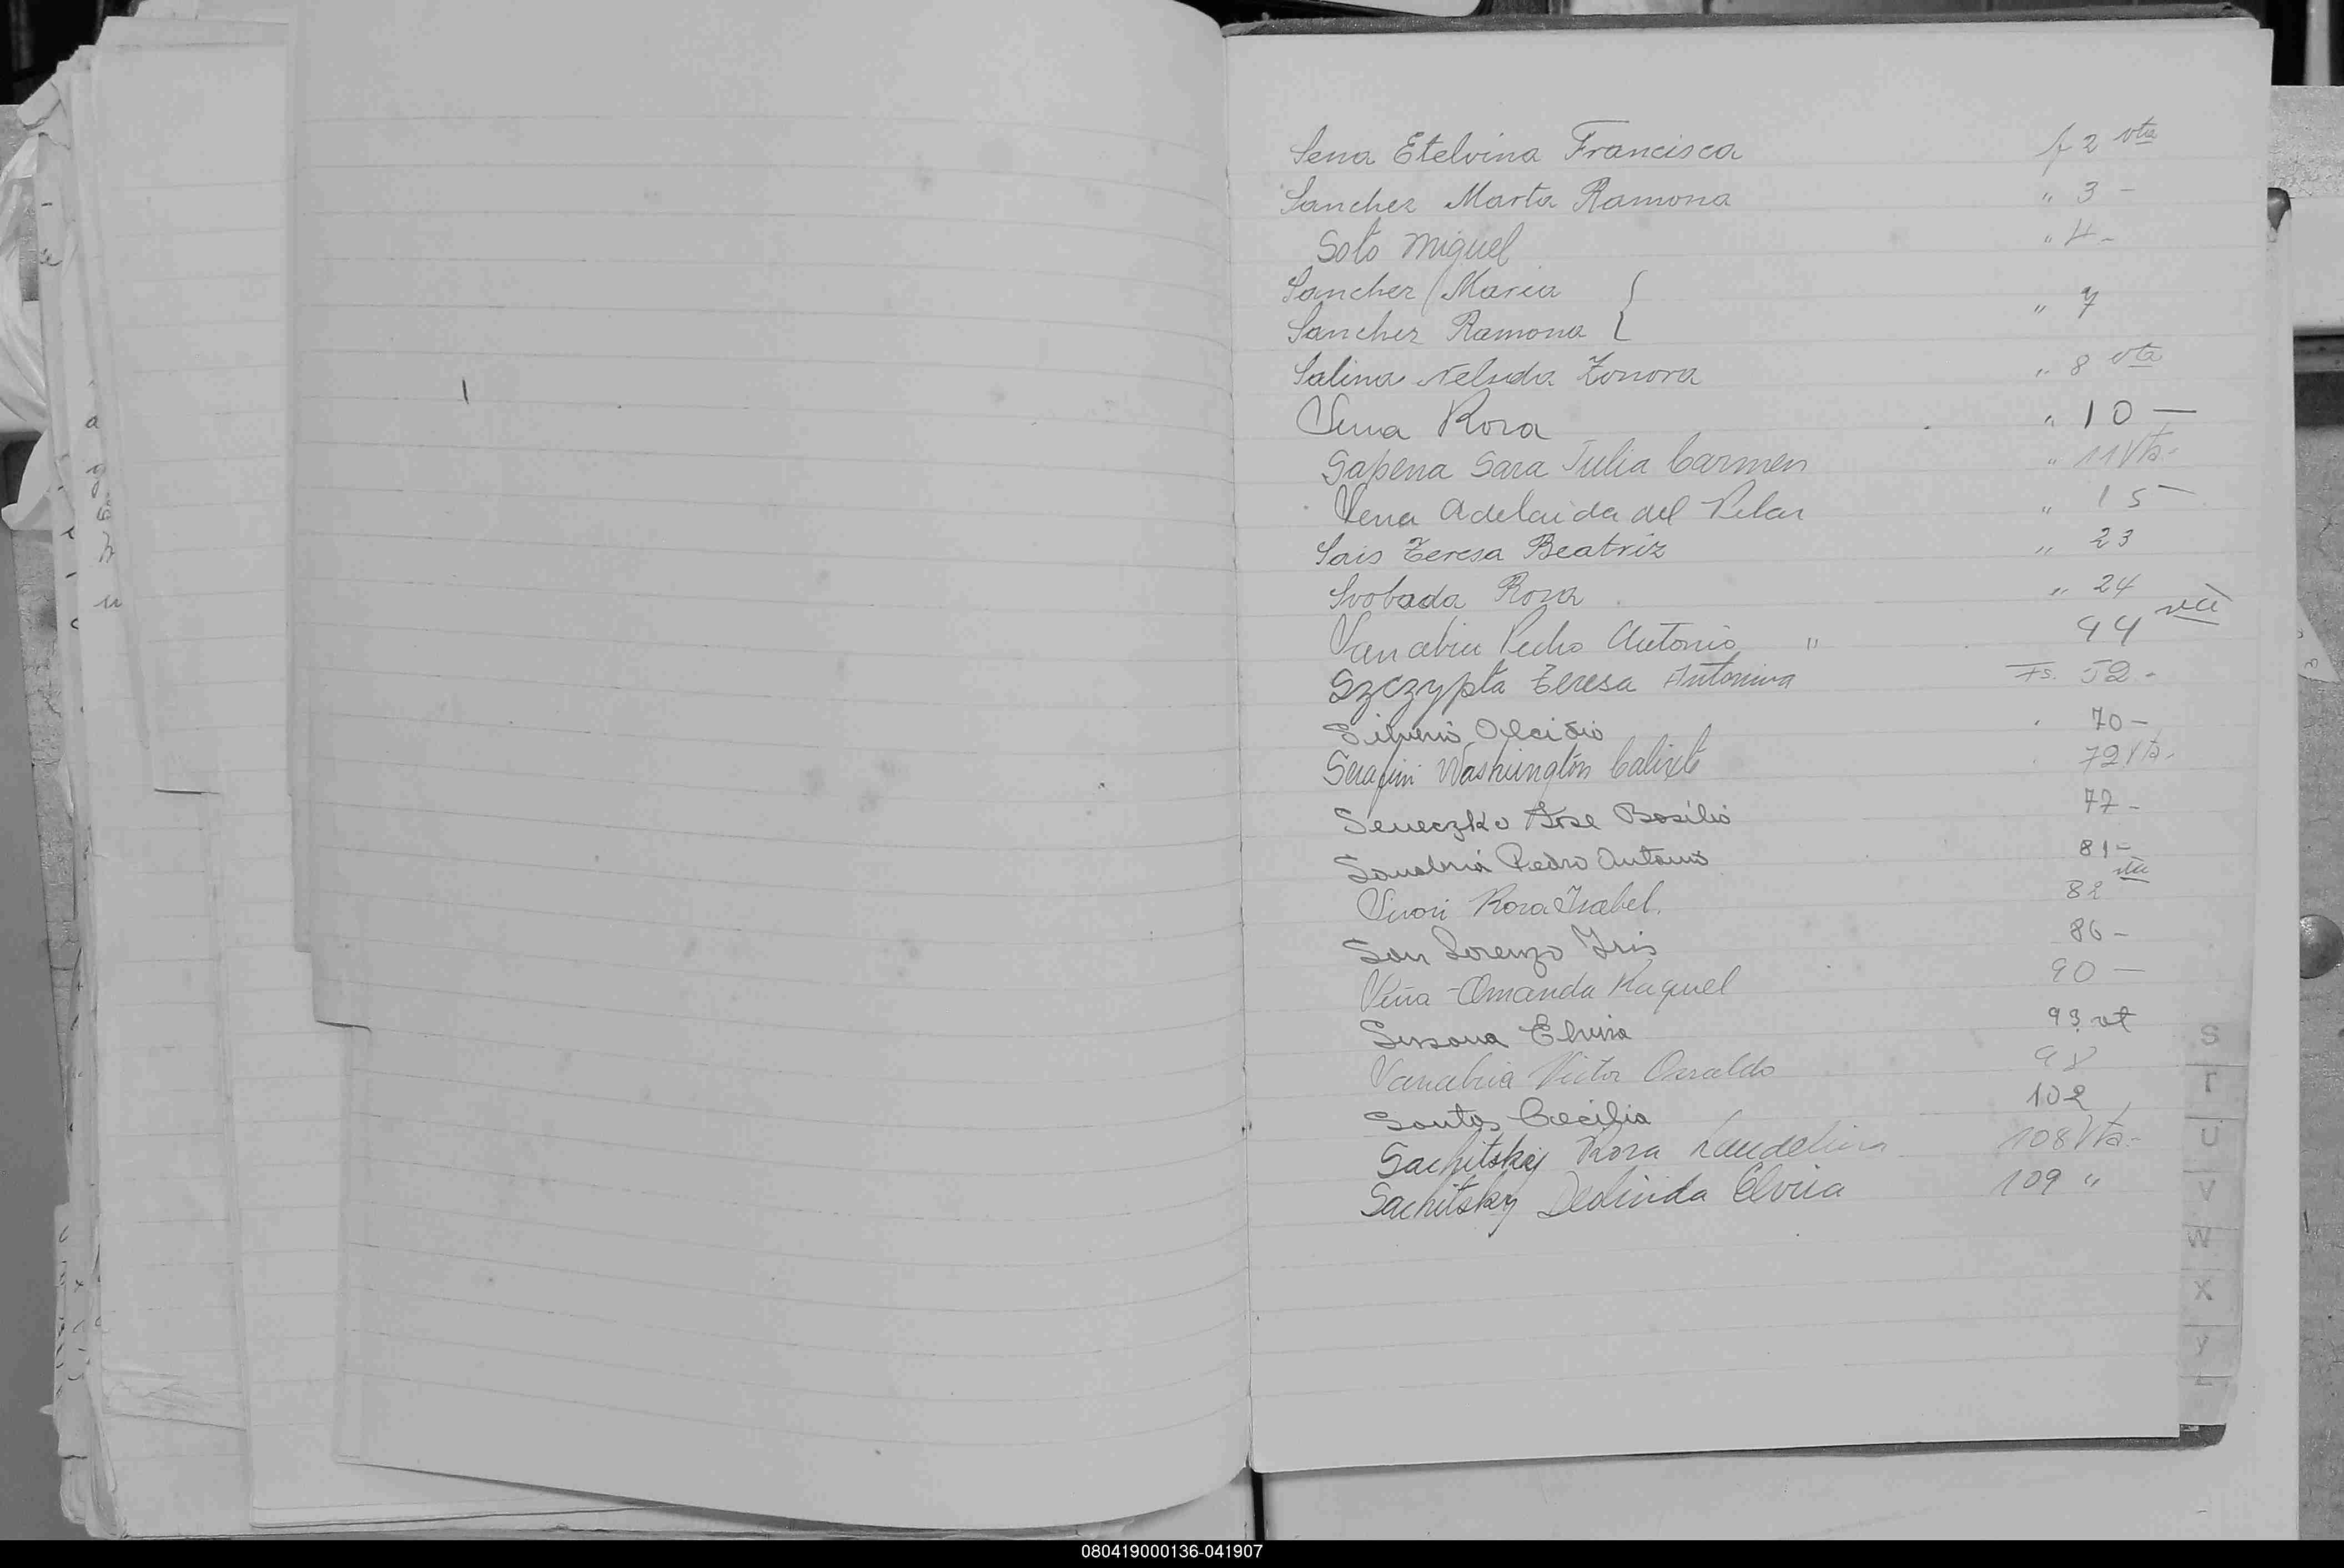 Sena Etelvina Francisca f 2 vta
Sanchez Marta Ramona " 3 -
Soto Miguel " 4 -
Sanchez Maria
Sanchez Ramona " 7
Salina Nelida Zonora " 8 vta
Sena Rosa " 10 —
Sapena Sara Julia Carmen " 11 Vta.
Sena Adelaida del Pilar " 15 —
Sais Teresa Beatriz " 23
Svobada Rosa " 24
Sanabria Pedro Antonio " 44 vta
Szczypta Teresa Antonina Fs. 52 -
Alcidio 70 -
Serafini Washington Calixto 72 Vta.
Seneczko Jose Basilio 77 -
Sanabria Pedro Antonio 81 -
Sivori Rosa Isabel. 82 vta
San Lorenzo Iris 86 -
Amanda Raquel 90 —
Elvira 93 vt
Sanabria Victor Osvaldo 98
Santos Cecilia 102
Sachitsky Rosa Laudelina 108 Vta.-
Sachitsky Deolinda Elvira 109 "
S
T
U
V
W
X
Y
080419000136-041907